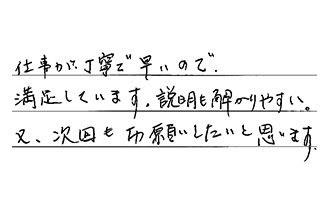 仕事が丁寧で早いので、
満足しています。説明も解かりやすい。
又、次回もお願いしたいと思います。